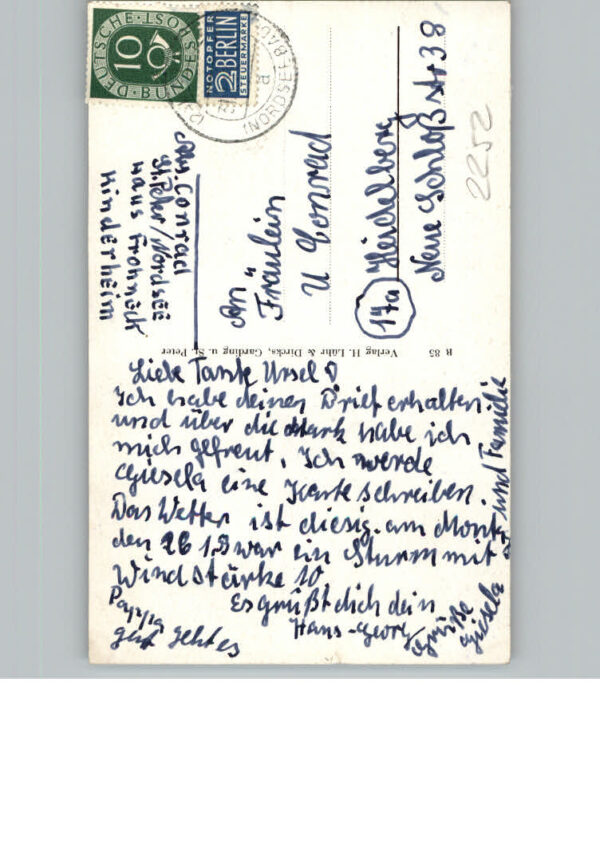 DEUTSCHE · BUNDESPOST
10
NOTOPFER
2 BERLIN
STEUERMARKE
(NORDSEEBAD)
Abs. Conrad
St. Peter/Nordsee
Haus Frohneck
Kinderheim
An
Fräulein
U Conrad
17a Heidelberg
Neue Schloßstr 38
2252
R 85 Verlag H. Lühr & Dircks, Garding u. St. Peter
Liebe Tante Ursel
Ich habe deinen Brief erhalten
und über die Mark habe ich
mich gefreut. Ich werde
Giesela eine Karte schreiben.
Das Wetter ist diesig. am Mont
den 26 1.5 war ein Sturm mit
Windstärke 10
Es grüßt dich dein
Hans-Georg
Pappa
geht es
gut
Grüße
Giesela und Familie